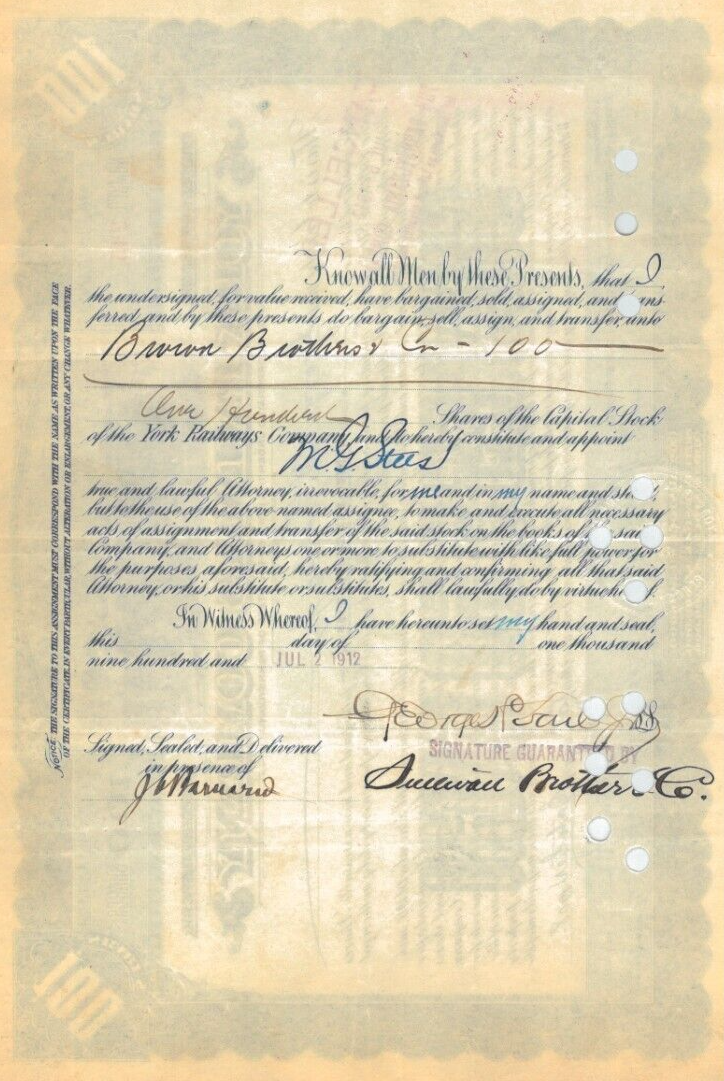 Know all Men by these Presents, that I
the undersigned, for value received, have bargained, sold, assigned, and trans
ferred and by these presents do bargain, sell, assign, and transfer, unto
Brown Brothers & Co - 100
One Hundred Shares of the Capital Stock
of the York Railways Company, and do hereby constitute and appoint
true and lawful Attorney, irrevocable, for me and in my name and stead,
but to the use of the above named assignee, to make and execute all necessary
acts of assignment and transfer of the said stock on the books of the said
Company, and Attorneys one or more to substitute with like full power for
the purposes aforesaid, hereby ratifying and confirming all that said
Attorney, or his substitute or substitutes, shall lawfully do by virtue hereof.
In Witness Whereof, I have hereunto set my hand and seal,
this day of one thousand
nine hundred and JUL 2 1912
Signed, Sealed, and Delivered
in presence of
SIGNATURE GUARANTEED BY
Brothers & Co.
NOTICE. THE SIGNATURE TO THIS ASSIGNMENT MUST CORRESPOND WITH THE NAME AS WRITTEN UPON THE FACE
OF THE CERTIFICATE, IN EVERY PARTICULAR, WITHOUT ALTERATION OR ENLARGEMENT, OR ANY CHANGE WHATEVER.
100
100